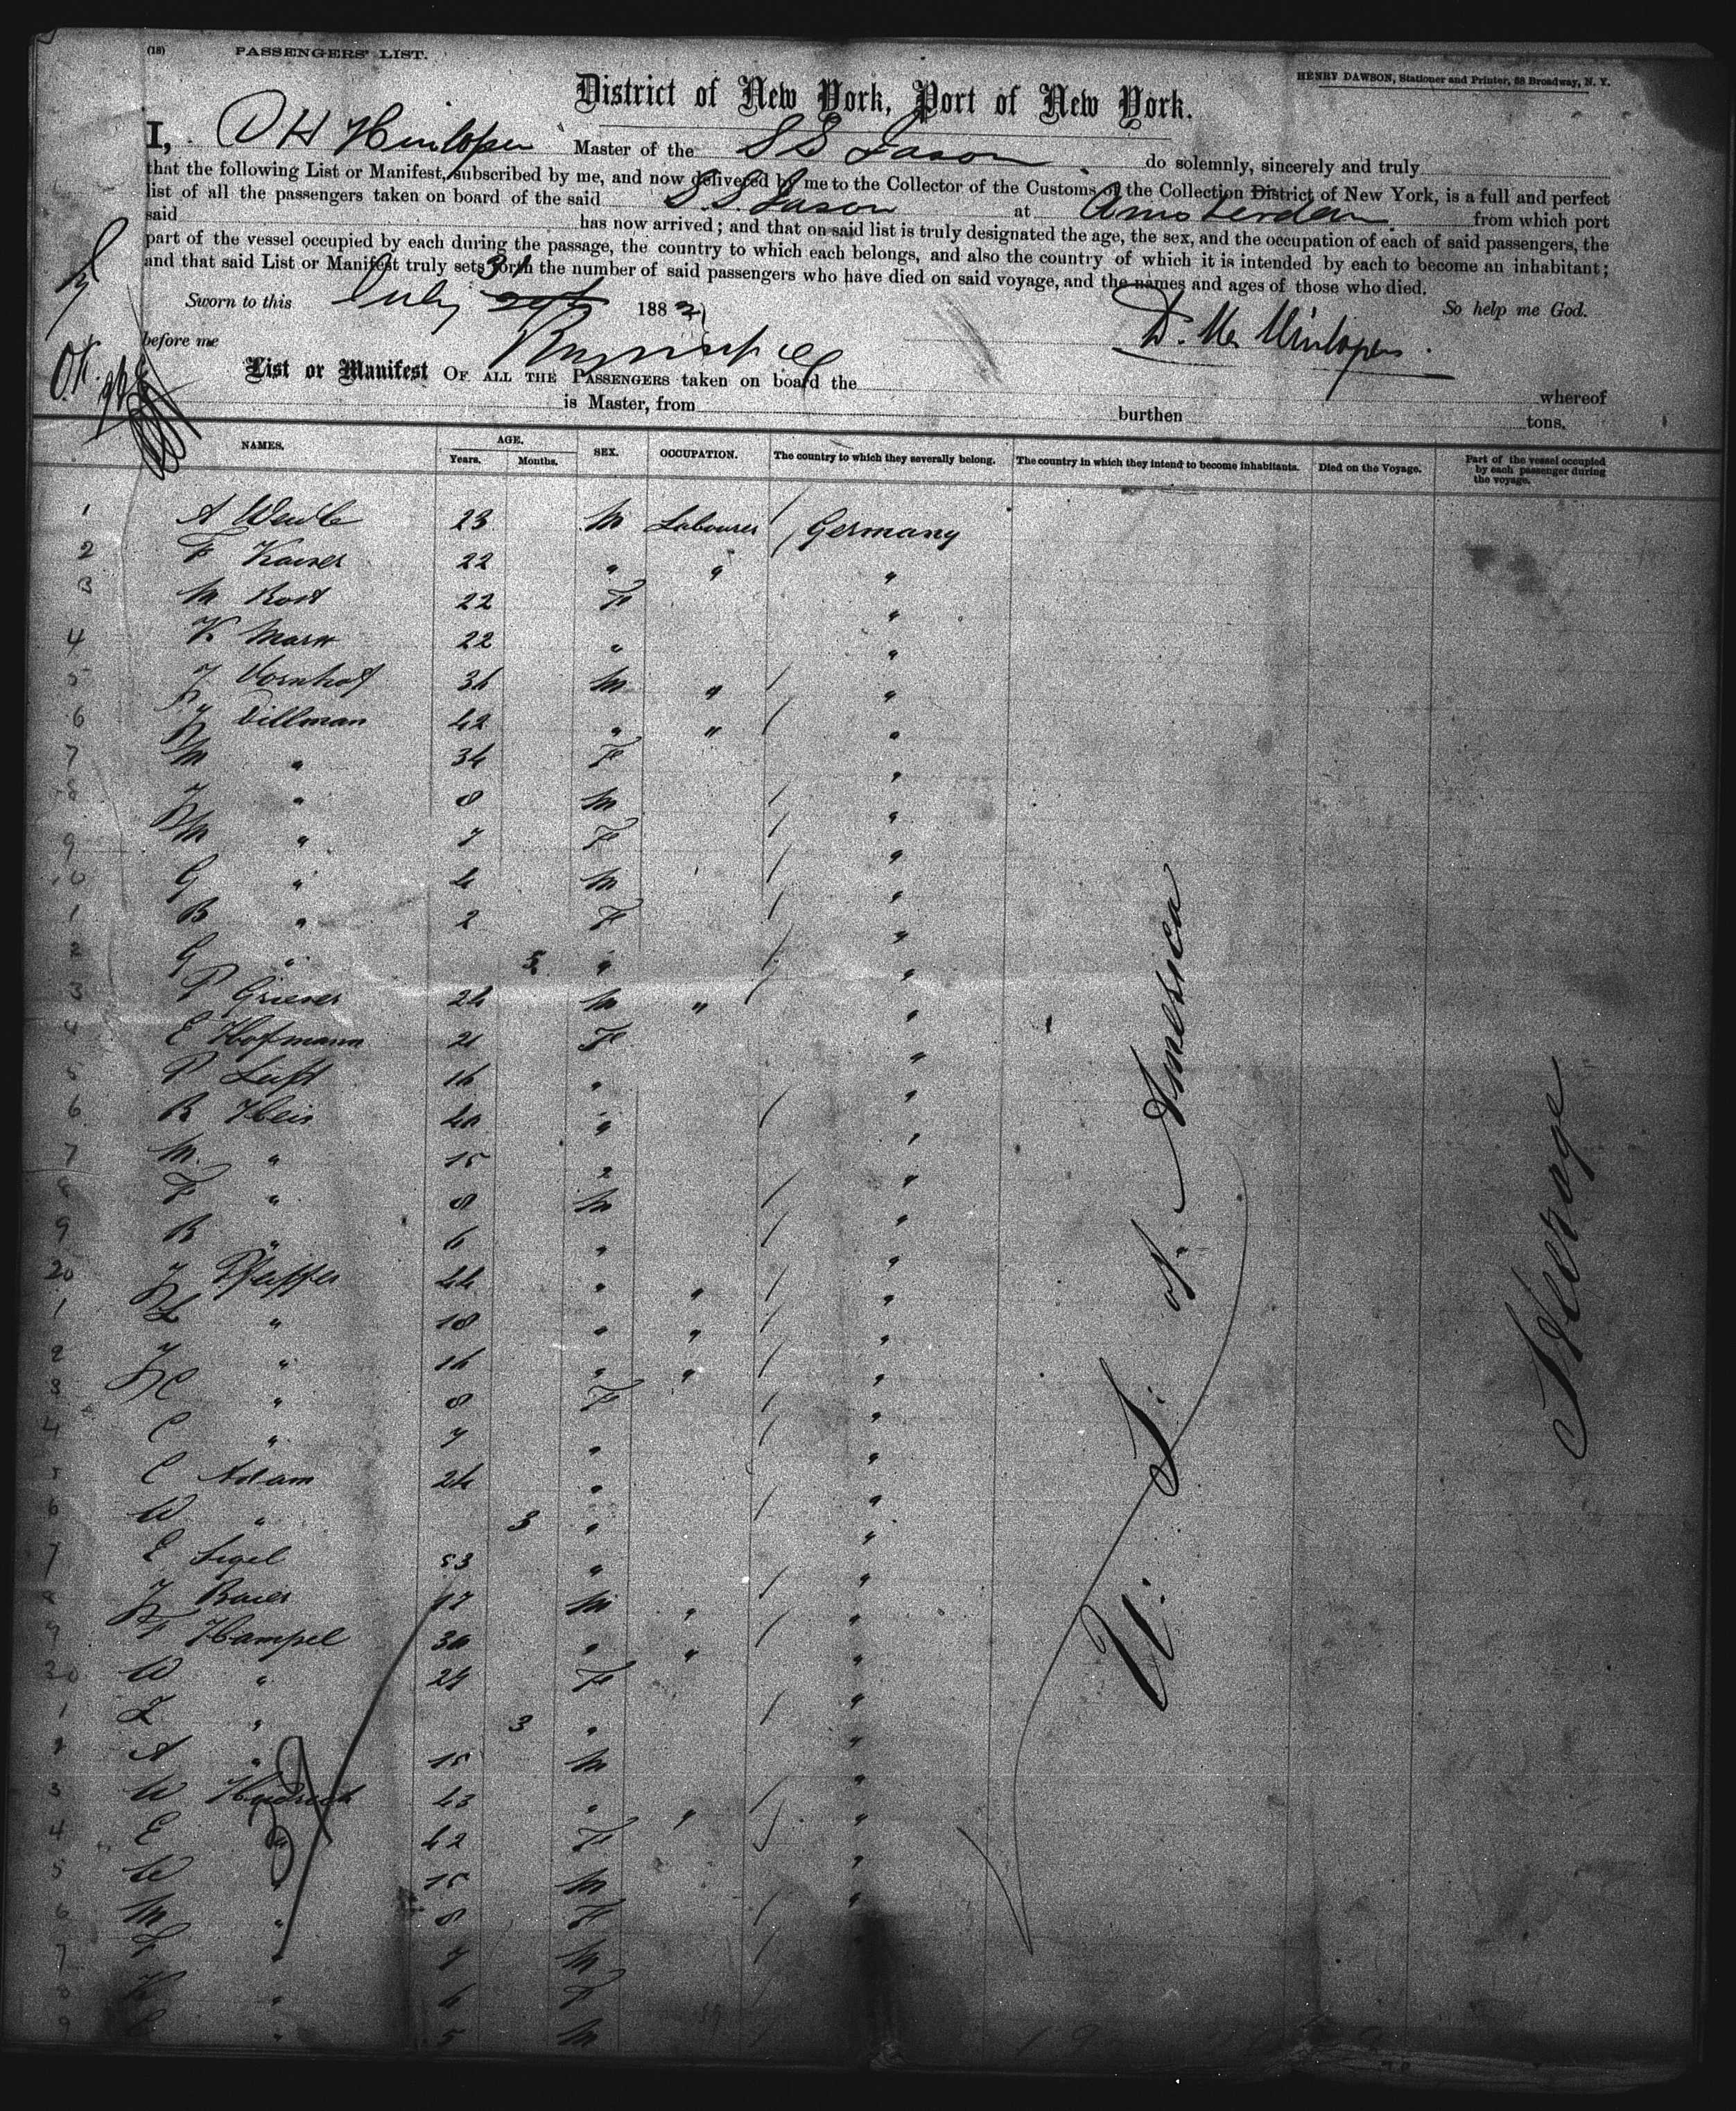 (18) PASSENGERS' LIST.
HENRY DAWSON, Stationer and Printer, 68 Broadway, N. Y.
District of New York, Port of New York.
I, D H Hinlopen Master of the S S Jason do solemnly, sincerely and truly
that the following List or Manifest, subscribed by me, and now delivered by me to the Collector of the Customs of the Collection District of New York, is a full and perfect
list of all the passengers taken on board of the said S. S. Jason at Amsterdam from which port
said has now arrived; and that on said list is truly designated the age, the sex, and the occupation of each of said passengers, the
part of the vessel occupied by each during the passage, the country to which each belongs, and also the country of which it is intended by each to become an inhabitant;
and that said List or Manifest truly sets forth the number of said passengers who have died on said voyage, and the names and ages of those who died.
Sworn to this July 31 1882 So help me God.
before me
List or Manifest OF ALL THE PASSENGERS taken on board the whereof
is Master, from burthen tons.
NAMES. AGE. Years. Months. SEX. OCCUPATION. The country to which they severally belong. The country in which they intend to become inhabitants. Died on the Voyage. Part of the vessel occupied by each passenger during the voyage.
1 A 23 M Labourer Germany
2 F Kaiser 22 " " "
3 M 22 F "
4 K 22 " "
5 J Vornhof M " "
6 J Dillman 42 " " "
7 M " 34 F "
8 J " 8 M "
9 M " 7 F "
10 G " 4 M "
1 B " 2 F "
2 G " 5 " "
3 P 24 M " "
4 E Hofmann 21 F "
5 P Luft 16 " "
6 B Heis 40 " "
7 M " 15 " "
8 F " 8 M "
9 B " 6 " "
20 J 44 " " "
1 L " 18 " " "
2 J " 16 " " "
3 C " 8 F "
4 C " 7 " "
5 C Adam 24 " "
6 W " 3 " "
7 E Sigel 53 " "
8 J Baier 17 M " "
9 F Hampel 30 " " "
30 W " 29 F "
1 " 3 " "
2 A " 15 M "
3 W 43 " " "
4 E " 42 F "
5 W " 15 M "
6 M " 8 F "
7 F " 7 M
8 K " 6 F
9 " 5 M
U. S. of America
Steerage